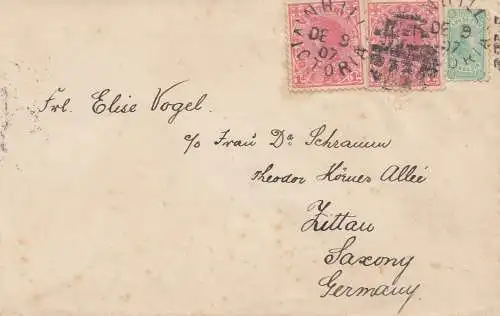 AINHILL
DE 9
07
VICTORIA
DE 9
07
Frl. Elise Vogel.
c/o Frau Dr Schramm
Theodor Körner Allée
Zittau
Saxony
Germany.